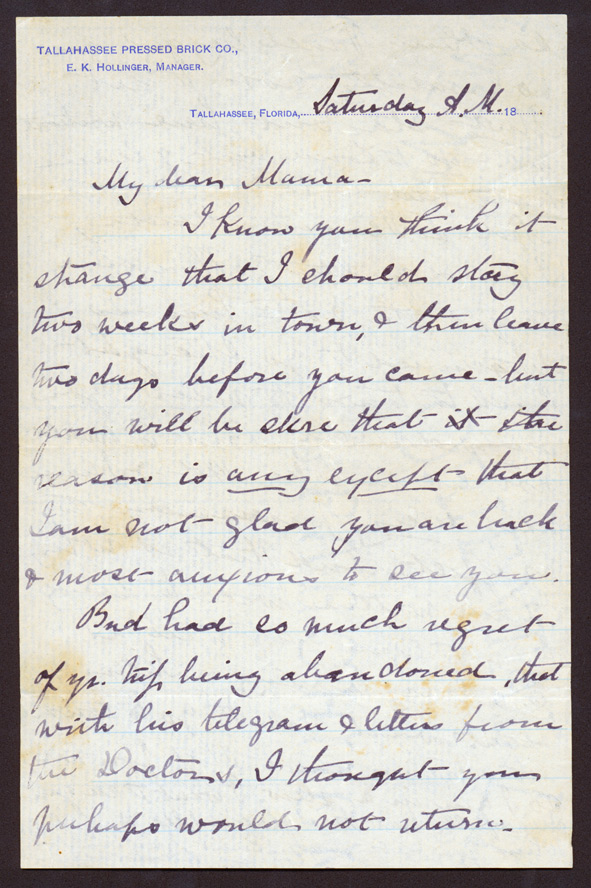 TALLAHASSEE PRESSED BRICK CO.,
E. K. HOLLINGER, MANAGER.
TALLAHASSEE, FLORIDA, Saturday A.M. 18
My dear Mama-
I know you think it
strange that I should stay
two weeks in town, & then leave
two days before you came - but
you will be sure that it the
reason is any except that
I am not glad you are back
& most anxious to see you.
Bud had so much regret
of yr. trip being abandoned, that
with his telegram & letters from
the Doctors, I thought you
perhaps would not return.